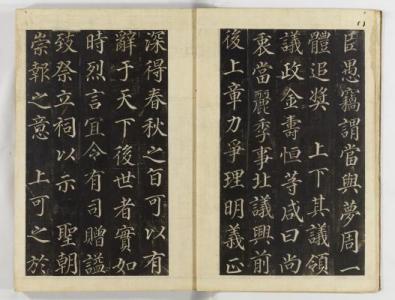 臣愚竊謂當與夢周一
體追奬 上下其議領
議政金壽恒等咸曰尚
衷當麗季事北議興前
後上章力爭理明義正
深得春秋之旨可以有
辭于天下後世者實如
時烈言宜令有司贈諡
致祭立祠以示 聖朝
崇報之意 上可之於